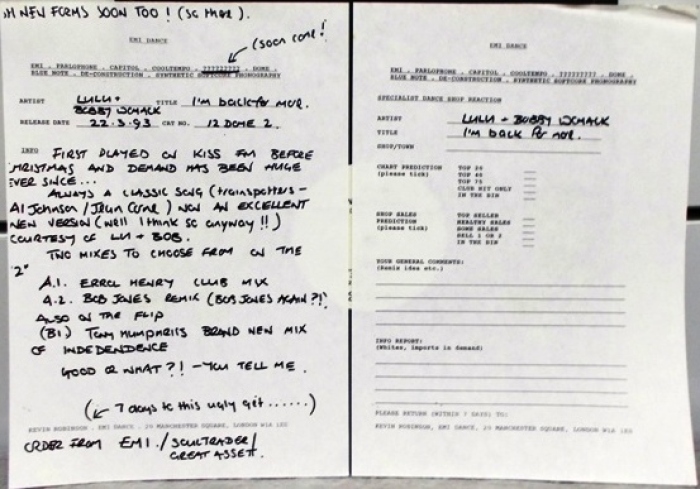 NEW FORMS SOON TOO! (SC MORE).
(soon come!
EMI DANCE
EMI . PARLOPHONE . CAPITOL . COOLTEMPO . ????????? . DOME .
BLUE NOTE . DE-CONSTRUCTION . SYNTHETIC SOFTCORE PHONOGRAPHY
ARTIST LULU + BOBBY WOMACK TITLE I'm back for mor.
RELEASE DATE 22.3.93 CAT NO. 12 DOME 2.
INFO FIRST PLAYED ON KISS FM BEFORE
CHRISTMAS AND DEMAND HAS BEEN HUGE
EVER SINCE...
ALWAYS A CLASSIC SONG (trainspotters -
Al Johnson / Jean Carne) NOW AN EXCELLENT
NEW VERSION (well I think so anyway!!)
COURTESY OF LU + BOB.
TWO MIXES TO CHOOSE FROM ON THE
"2"
A.1. ERROL HENRY CLUB MIX
A.2. BOB JONES REMIX (BOB JONES AGAIN?!)
ALSO ON THE FLIP
(B1) Tony HUMPHRIES BRAND NEW MIX
OF INDEPENDENCE
GOOD OR WHAT?! - YOU TELL ME.
(7 days to this ugly get ......)
KEVIN ROBINSON . EMI DANCE . 20 MANCHESTER SQUARE, LONDON W1A 1ES
ORDER FROM EMI. / SOULTRADER /
GREAT ASSET.
EMI DANCE
EMI . PARLOPHONE . CAPITOL . COOLTEMPO . ???????? . DOME .
BLUE NOTE . DE-CONSTRUCTION . SYNTHETIC SOFTCORE PHONOGRAPHY
SPECIALIST DANCE SHOP REACTION
ARTIST LULU + BOBBY WOMACK
TITLE I'm back for mor.
SHOP/TOWN
CHART PREDICTION TOP 20
(please tick) TOP 40
TOP 75
CLUB HIT ONLY
IN THE BIN
SHOP SALES TOP SELLER
PREDICTION HEALTHY SALES
(please tick) SOME SALES
SELL 1 OR 2
IN THE BIN
YOUR GENERAL COMMENTS:
(Remix idea etc.)
INFO REPORT:
(Whites, imports in demand)
PLEASE RETURN (WITHIN 7 DAYS) TO:
KEVIN ROBINSON, EMI DANCE, 20 MANCHESTER SQUARE, LONDON W1A 1ES